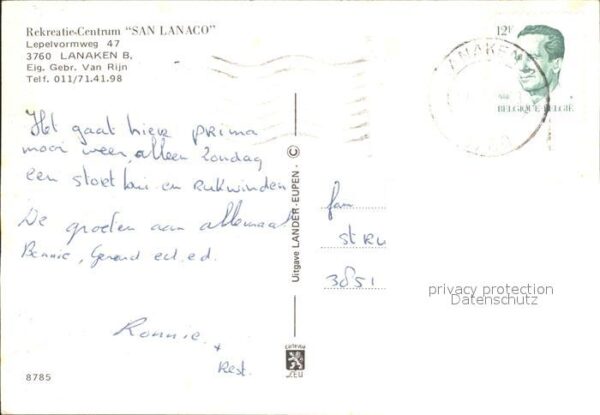 Rekreatie-Centrum "SAN LANACO"
Lepelvormweg 47
3760 LANAKEN B.
Eig. Gebr. Van Rijn
Telf. 011/71.41.98
12F
LANAKEN
BELGIQUE BELGIË
Het gaat hier prima
mooi weer, alleen Zondag
een stort bui en Rukwinden
De groeten aan allemaal
Bennie, Gerard
Ronnie.
+
Rest.
Uitgave LANDER-EUPEN - ©
fam
3851
privacy protection
Datenschutz
8785